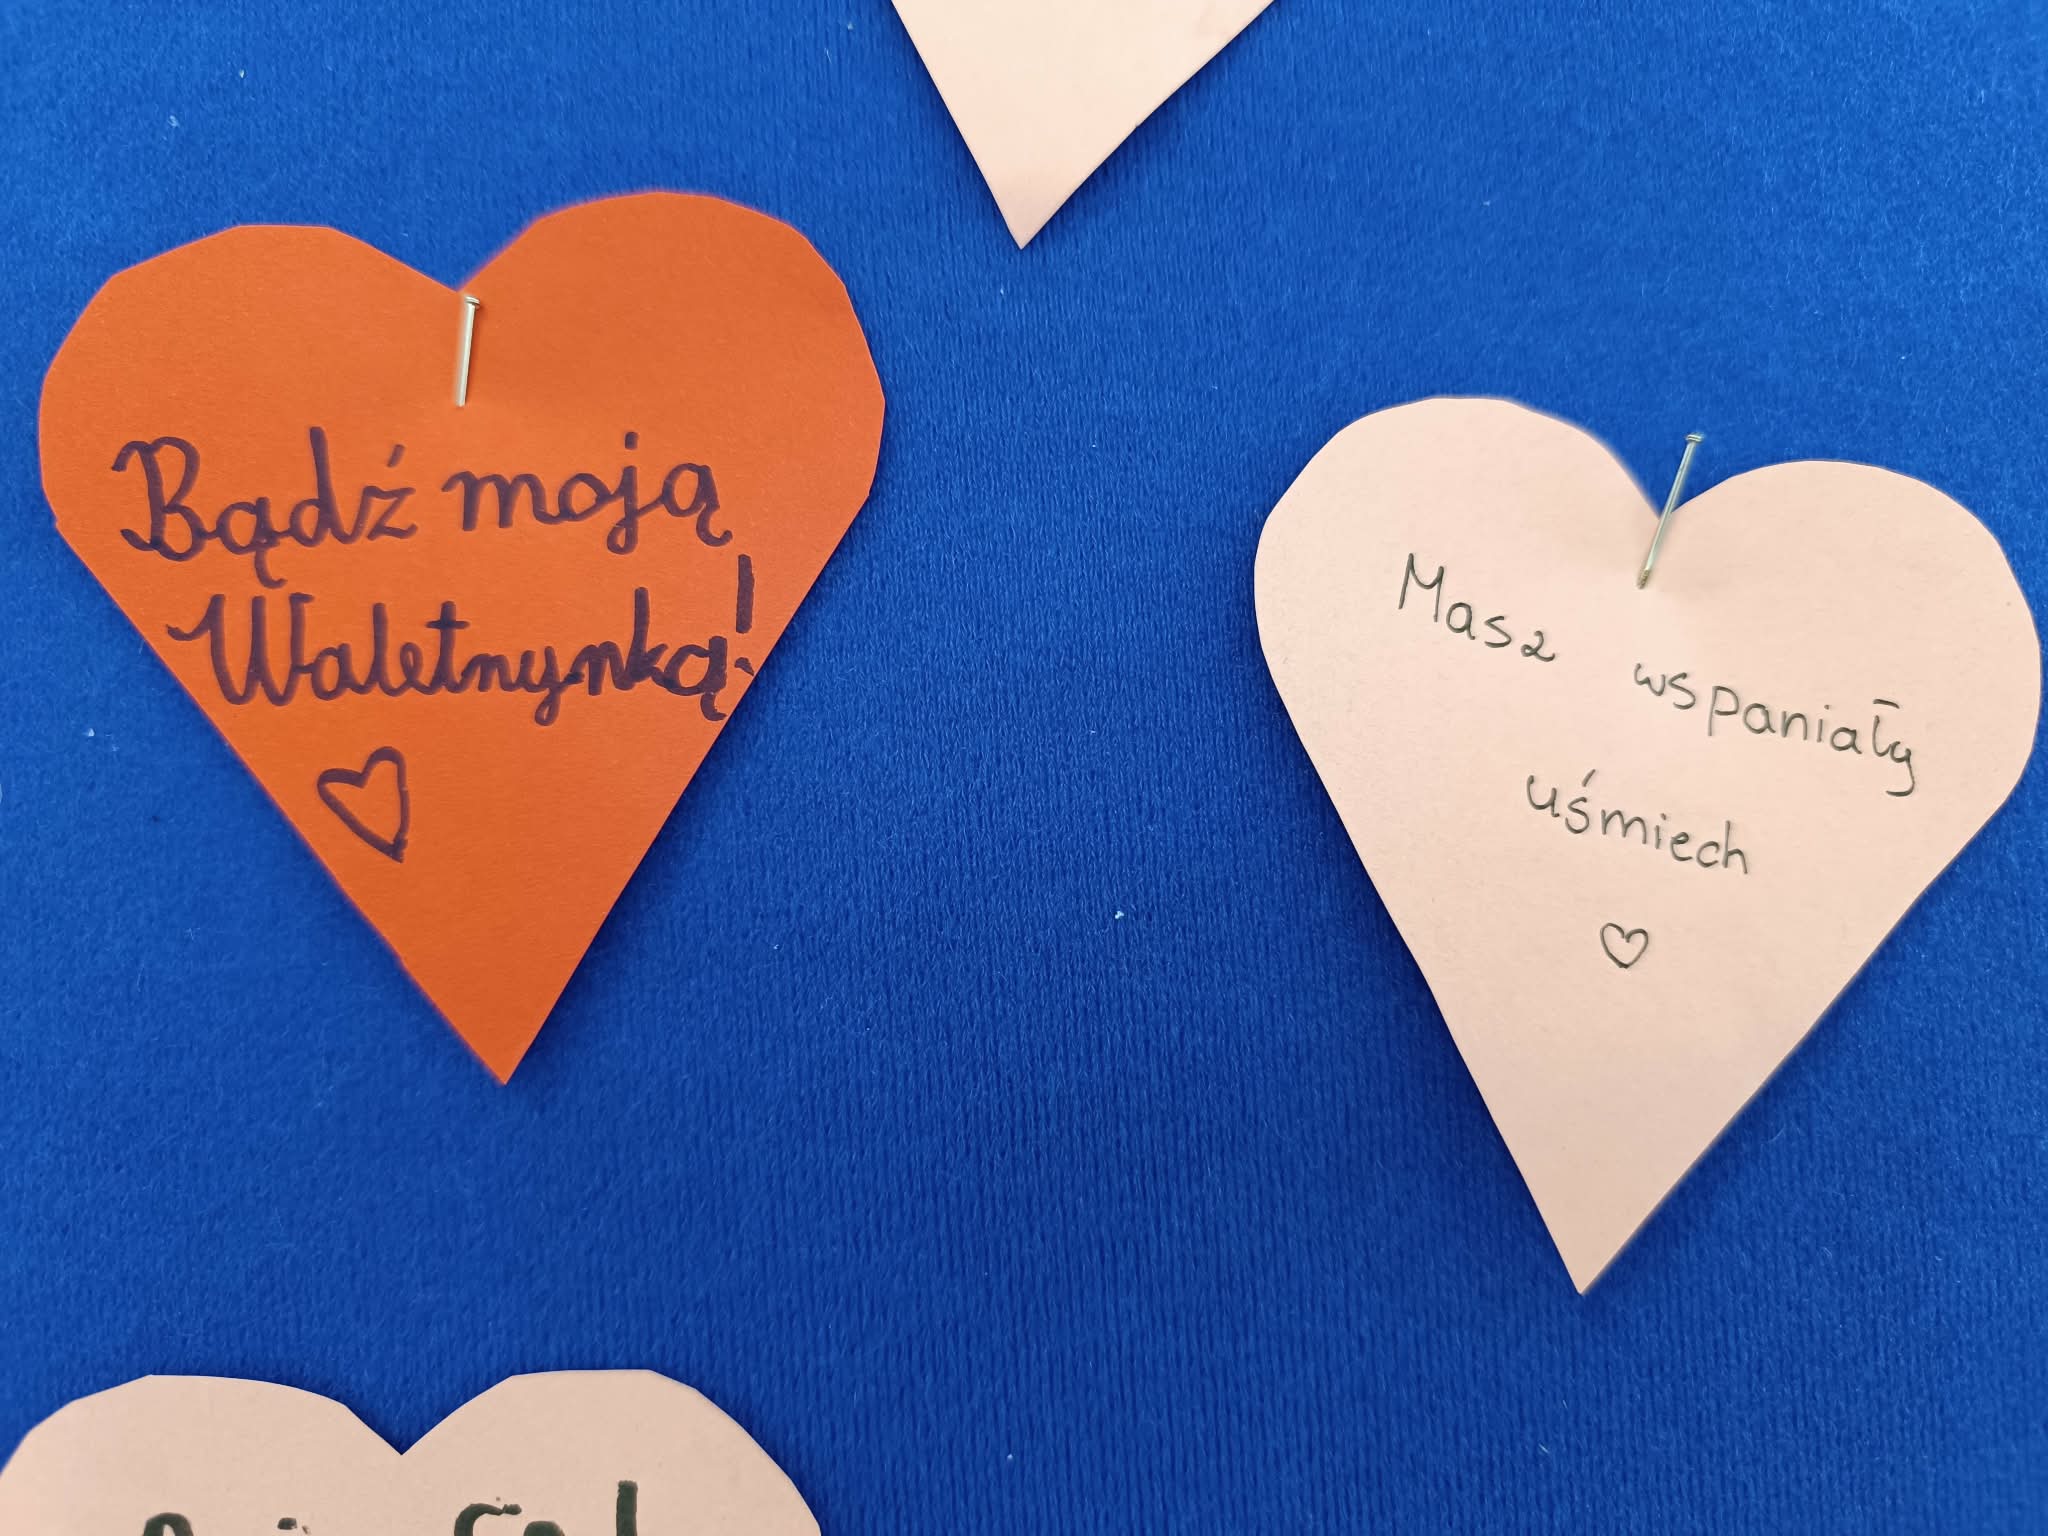 Bądź moją
Waletnynką!
Masz wspaniały
uśmiech